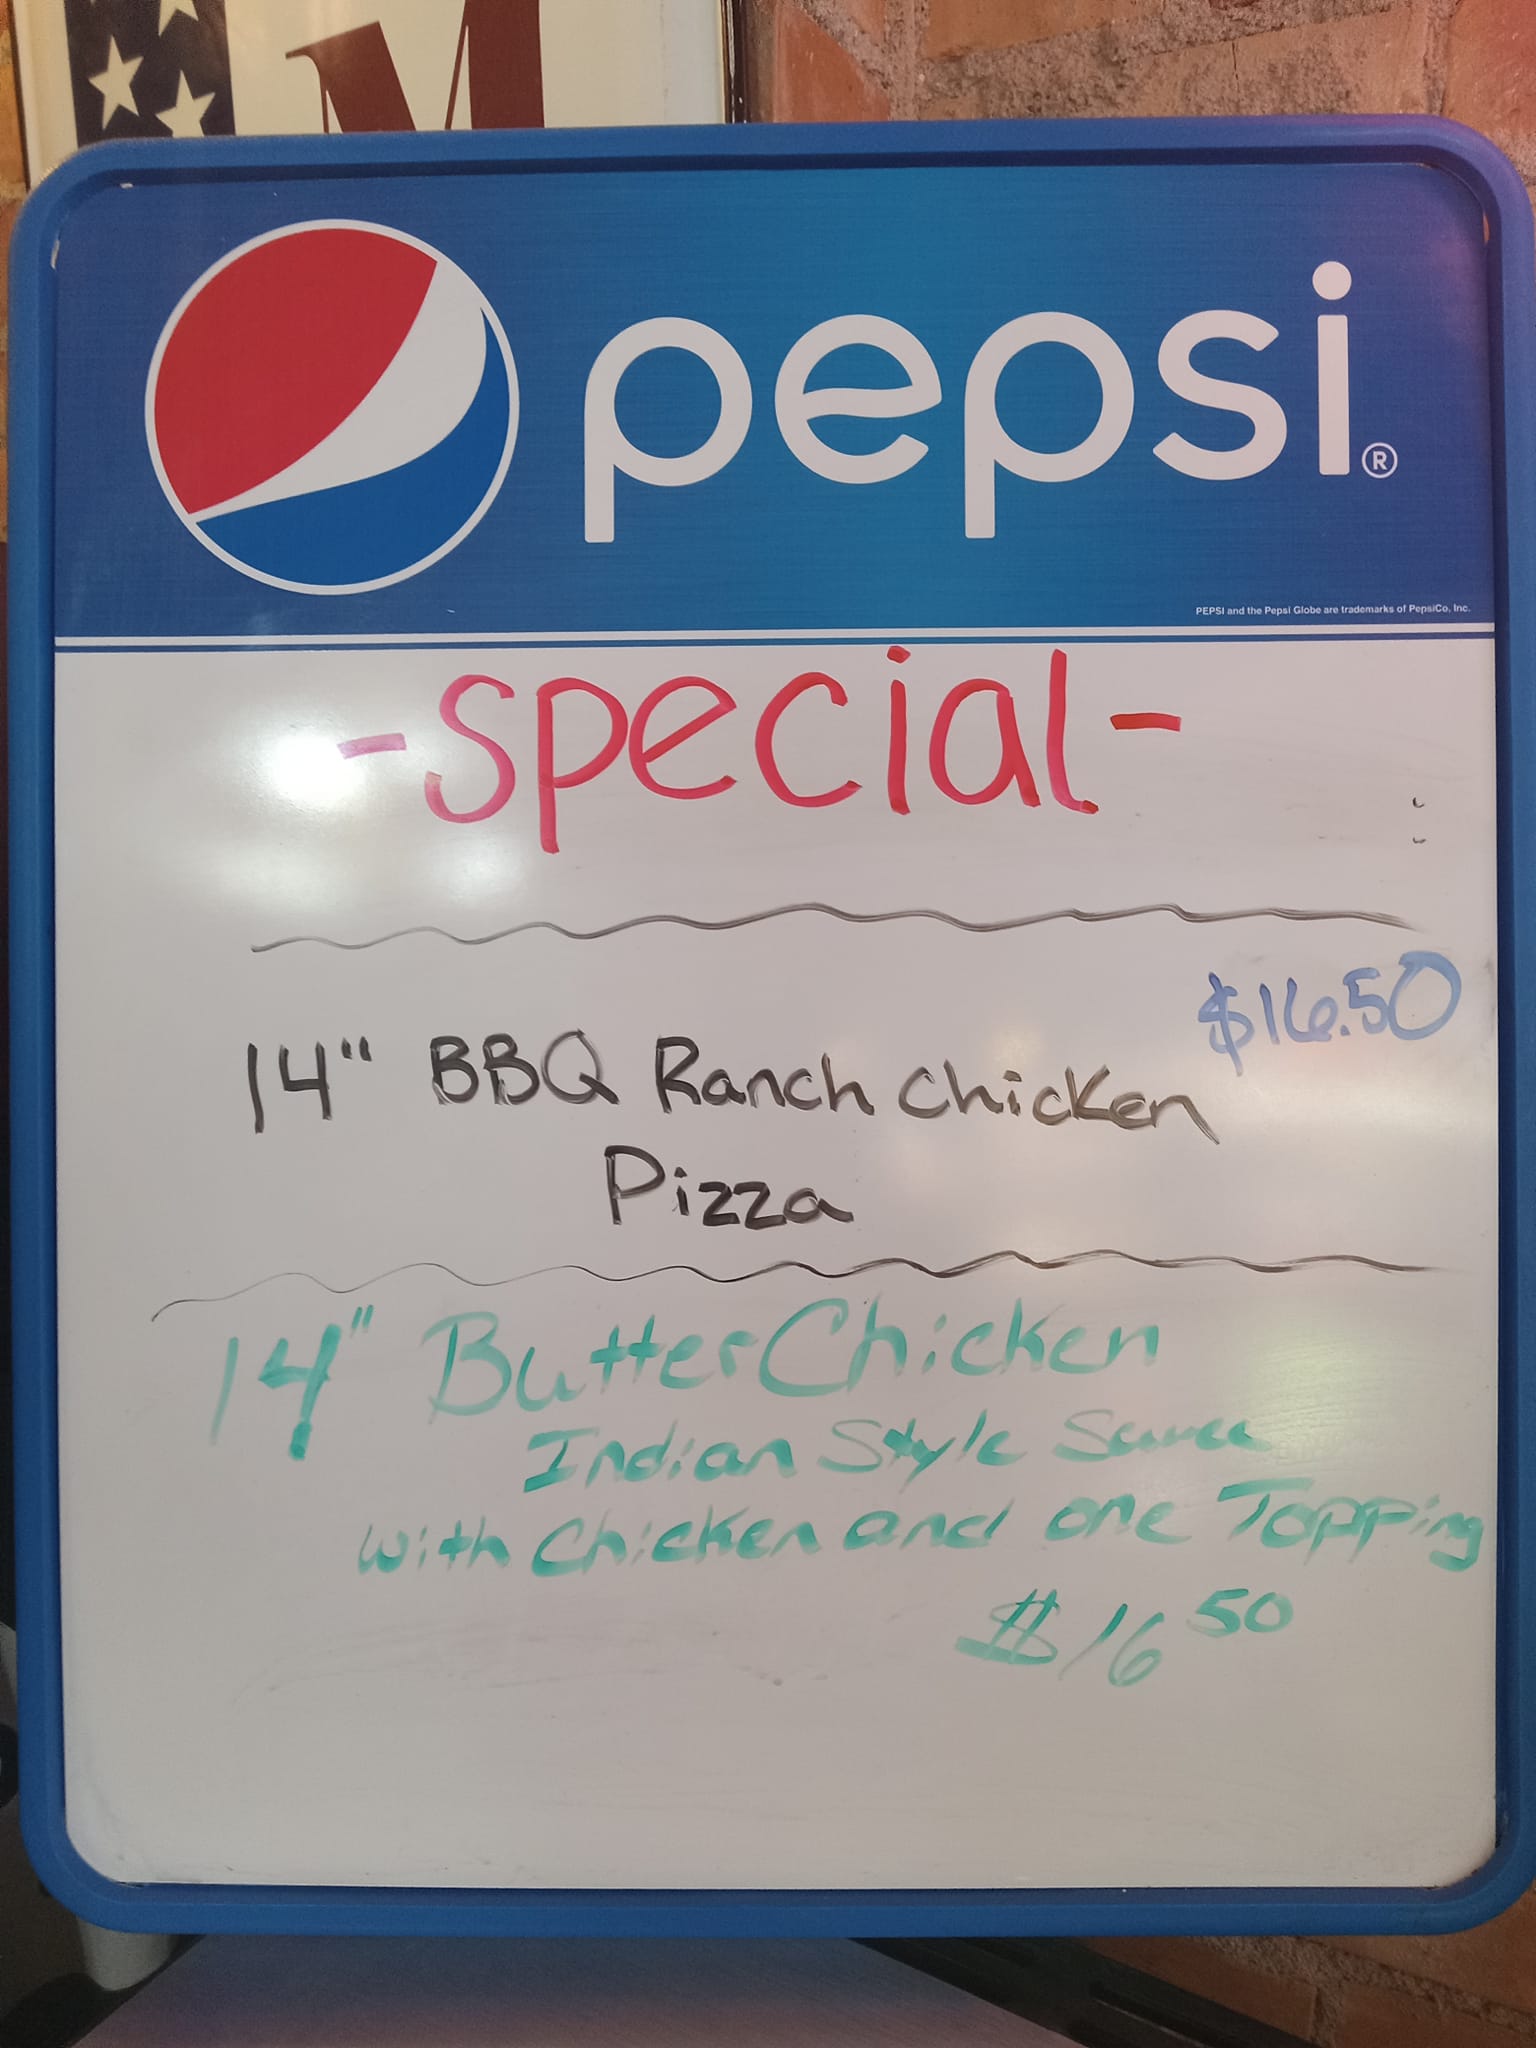 M
pepsi®
PEPSI and the Pepsi Globe are trademarks of PepsiCo, Inc.
-special-
$16.50
14" BBQ Ranch Chicken
Pizza
14" Butter Chicken
Indian Style Sauce
with Chicken and one Topping
$16 50